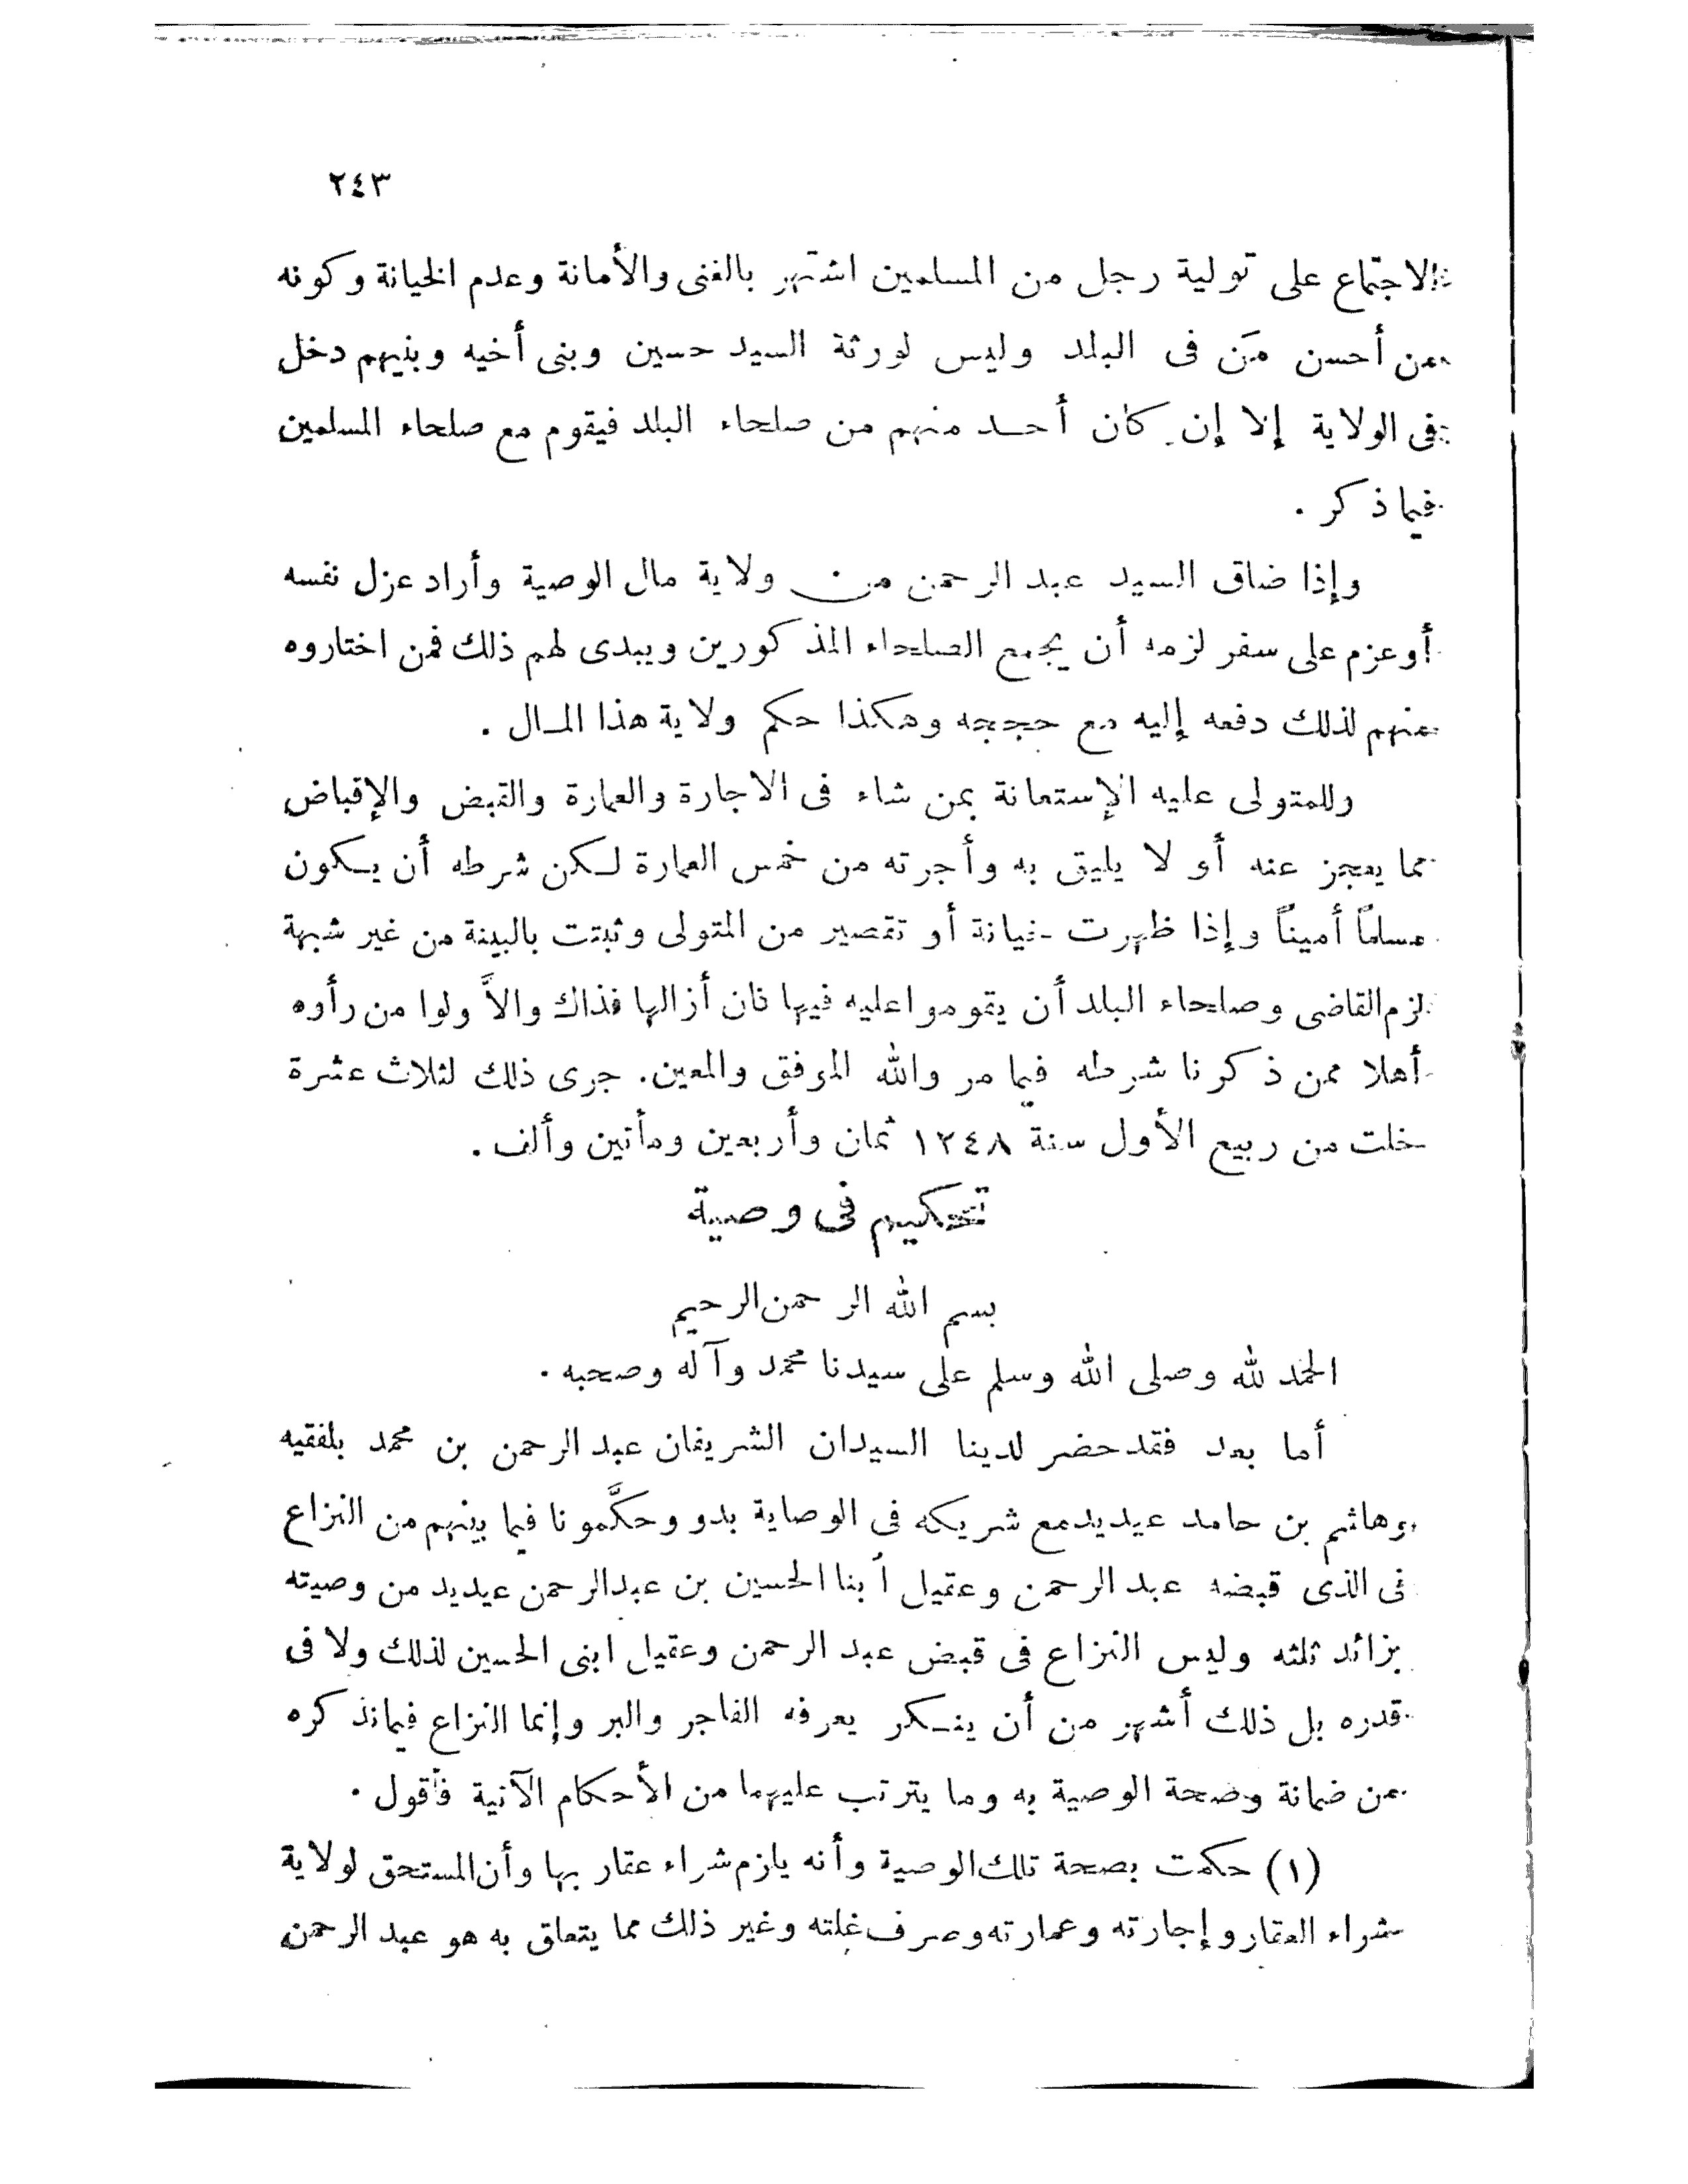 ٢٤٣
الاجتماع على تولية رجل من المسلمين اشتهر بالغنى والأمانة وعدم الخيانة وكونه
من أحسن مَن فى البلد وليس لورثة السيد حسين وبنى أخيه وبنيهم دخل
فى الولاية إلا إن كان أحد منهم من صلحاء البلد فيقوم مع صلحاء المسلمين
فيما ذكر .
وإذا ضاق السيد عبد الرحمن من ولاية مال الوصية وأراد عزل نفسه
أو عزم على سفر لزمه أن يجمع الصلحاء المذكورين ويبدى لهم ذلك فمن اختاروه
منهم لذلك دفعه إليه مع حججه وهكذا حكم ولاية هذا المال .
وللمتولى عليه الإستعانة بمن شاء فى الاجارة والعمارة والقبض والإقباض
مما يعجز عنه أو لا يليق به وأجرته من خمس العمارة لكن شرطه أن يكون
مسلماً أميناً وإذا ظهرت خيانة أو تقصير من المتولى وثبتت بالبينة من غير شبهة
لزم القاضى وصلحاء البلد أن يقوموا عليه فيها فان أزالها فذاك والاَّ ولوا من رأوه
أهلا ممن ذكرنا شرطه فيما مر والله الموفق والمعين. جرى ذلك لثلاث عشرة
خلت من ربيع الأول سنة ١٢٤٨ ثمان وأربعين ومأتين وألف .
تحكيم فى وصية
بسم الله الرحمن الرحيم
الحمد لله وصلى الله وسلم على سيدنا محمد وآله وصحبه .
أما بعد فقد حضر لدينا السيدان الشريفان عبد الرحمن بن محمد بلفقيه
وهاشم بن حامد عيديد مع شريكه فى الوصاية بدو وحكَّمونا فيما بينهم من النزاع
فى الذى قبضه عبد الرحمن وعقيل أبنا الحسين بن عبدالرحمن عيديد من وصيته
بزائد ثلثه وليس النزاع فى قبض عبد الرحمن وعقيل ابنى الحسين لذلك ولا فى
قدره بل ذلك أشهر من أن ينكر يعرفه الفاجر والبر وإنما النزاع فيما نذكره
من ضمانة وصحة الوصية به وما يترتب عليهما من الأحكام الآتية فأقول .
(١) حكمت بصحة تلك الوصية وأنه يلزم شراء عقار بها وأن المستحق لولاية
شراء العقار وإجارته وعمارته وصرف غلته وغير ذلك مما يتعلق به هو عبد الرحمن